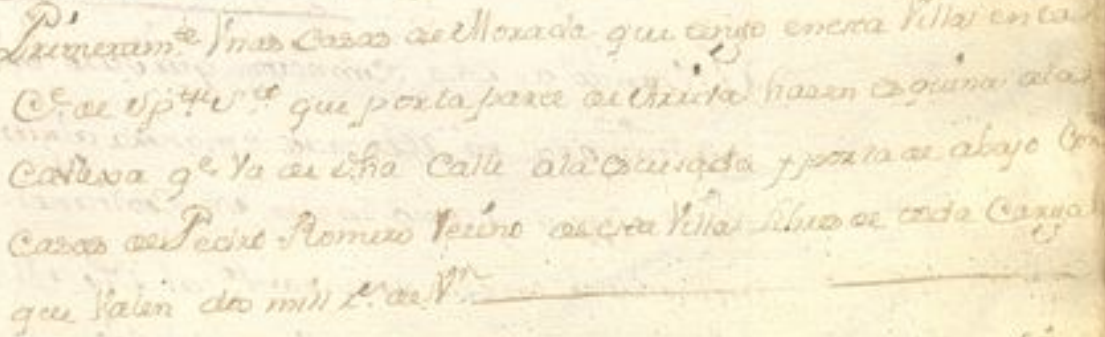 Primeram.te Vnas Casas de Morada que tengo en esta Villa en la
C.e de Sp.tu S.to que por la parte de Arriva hasen esquina a la
Callexa q.e Va de dha Calle a la y por la de abajo Con
Casas de Pedro Romero Vecino de esta Villa libres de toda Carga
que Valen dos mill r.s de V.n